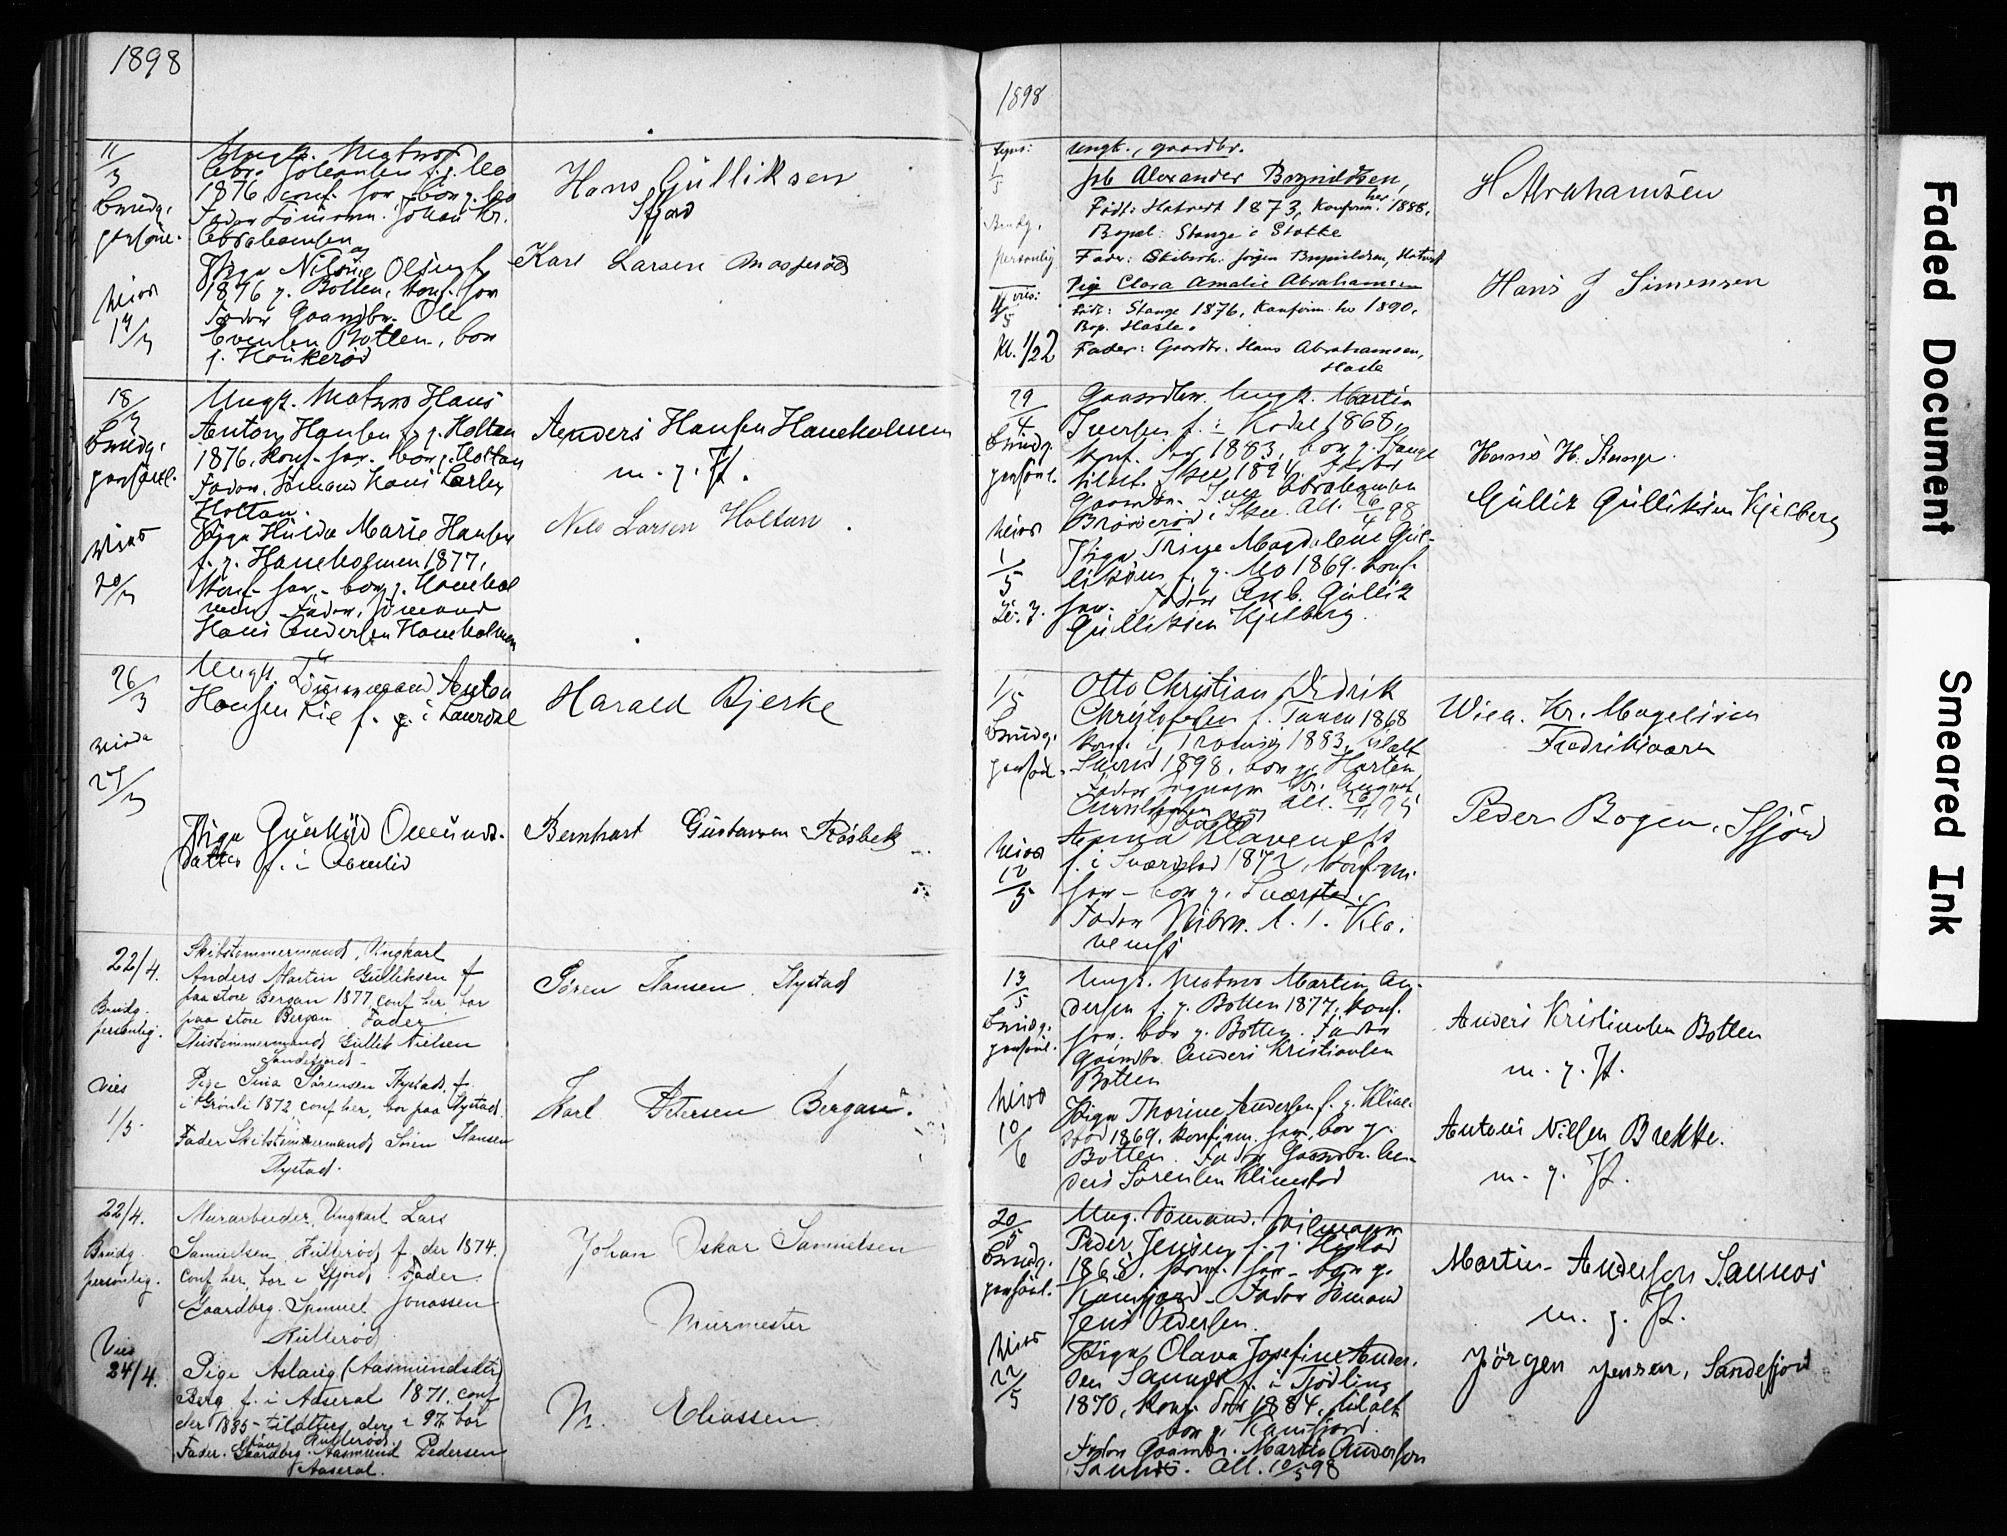 1898
11/3
Brudg.
personl.
1876 conf. her bor
Fader Sømann Johan Kr.
Abrahamsen
og
1876 p. Botten, konf. her
Fader Gaardbr. Ole
Evensen Botten, bor
p. Haukerød
Hans Gulliksen
Sfjord
Karl Larsen
18/3
Brudg.
personl.
viet
20/3
Ungk. Matros Hans
Anton Hansen f. p. Holtan
1876, konf. her. bor p. Holtan
Fader, Sømand Hans Larsen
Holtan.
Pige Hulda Marie Hansen
f. p. Haneholmen 1877,
konf. her - bor p. Hanehol
men - Fader, Sømand
Hans Andersen Haneholmen
Anders Hansen Haneholmen
m. p. P.
Nils Larsen Holtan.
26/3
27/3
Ungk. Tømmermand Anton
Hansen Lie f. i Laurdal
Pige
datter f. i
Harald Bjerke
Bernhart Gustavsen Råsbek
22/4.
Brudg.
personlig.
Vies
1/5
Skibstømmermand, Ungkarl
Anders Martin Gulliksen f
paa store Bergan 1877 conf her. bor
paa store Bergan Fader
Skibstømmermand Gullik Nielsen
Sandefjord -
Pige Sina Sørensen Nystad f.
i Grønli 1872, conf her, bor paa Nystad.
Fader Skibstømmermand Søren Hansen
Nystad.
Søren Hansen Nystad
Karl Petersen Bergan.
22/4.
Brudg.
personlig.
Vies
24/4.
Murarbeider, Ungkarl Lars
Samuelsen Kullerød f der 1874.
conf her, bor i Sfjord. Fader
Gaardbrg. Samuel Jonassen
Kullerød
Pige Aslaug (Aasmundsdtr)
Berg f. i Aaseral 1871. conf
der 1885 - tilflyttet derfra i 97. bor
paa Kullerød.
Fader. Gaardbrg. Aasmund Pedersen
Aaseral.
Johan Oskar Samuelsen
Murmester
N. Eliassen.
1898
Lyns:
1/5
Brudg.
personlig
Vies:
Kl. 1/2 2
Ungk., gaardbr.
Job Alexander Brynildsen,
Født: Hotvedt 1873, Konfirm. her 1888.
Bopæl: Stange i Stokke
Fader: Skibstr. Jørgen Brynildsen, Hotvedt
Pige Clara Amalie Abrahamsen
Født: Stange 1876, Konfirm. her 1890.
Bop. Hasle.
Fader: Gaardbr. Hans Abrahamsen,
Hasle
H Abrahamsen
Hans J Simensen
29/4
Brudg.
personl.
viet
1/5
Gaardbr. Ungk. Martin
Iversen f. i Kodal 1868,
konf. der 1883, bor p. Stange
tilfl. Skee 1894. Fader
Gaardbr. Iver Abrahamsen
Brønnerød i Skee. Att. 26/4 98
Pige Trine Magdalene Gul-
liksen f. p. Mo 1869. konf.
her. Fader Arb. Gullik
Gulliksen Kjelberg.
Hans H. Stange.
Gullik Gulliksen Kjelberg
1/5
Brudg.
viet
12/5
Otto Christian Didrik
Christophersen f. Tanen 1868
konf. i Tromsø 1883,
1898, bor p. Horten,
Anna Klavenes
f. i Sværstad 1872, konfirm.
her - bor p. Sværstad.
Fader
Wilh. Kr. Magelssen
Fredriksværn
Peder Bogen, Sfjord
13/5
Brudg.
personl.
viet
10/6
Ungk. Matros Martin An-
dersen f. p. Botten 1877, konf.
her. bor p. Botten. Fader
Gaardbr. Anders Kristiansen
Botten
Pige Thorine Andersen f. p. Kline-
stad 1869. konfirm. her, bor p.
Botten. Fader Gaardbr. An-
ders Sørensen Klinestad
Anders Kristiansen Botten
m. p. P.
Antoni Nilsen Brekke.
m. p. P.
20/5
Brudg.
personl.
viet
22/5
Ung. Sømand.
Peder Jensen f. p.
1865, konf. her - bor p.
Kamfjord - Fader Sømand
Jens Pedersen.
Pige, Olava Josefine Ander-
sen Sannes f. i Tjødling
1870, konf. der 1884, tilfl.
bor p. Kamfjord.
Fader Gaardbr. Martin Andersen
Sannes. Att. 10/5 98
Martin Andersen Sannes
m. p. P.
Jørgen Jensen, Sandefjord
Faded Document
Smeared Ink